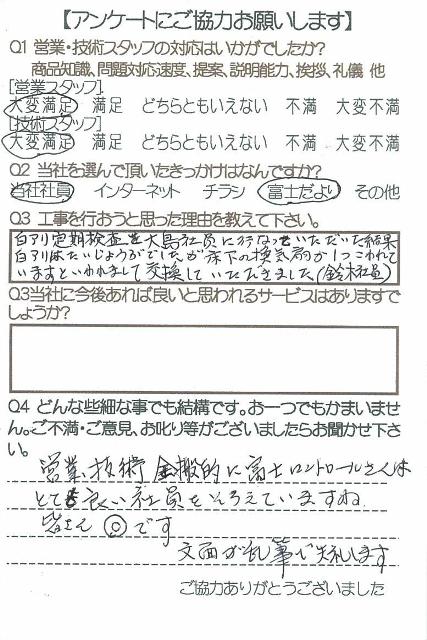 【アンケートにご協力お願いします】
Q1 営業・技術スタッフの対応はいかがでしたか?
商品知識、問題対応速度、提案、説明能力、挨拶、礼儀 他
[営業スタッフ]
大変満足 満足 どちらともいえない 不満 大変不満
[技術スタッフ]
大変満足 満足 どちらともいえない 不満 大変不満
Q2 当社を選んで頂いたきっかけはなんですか?
当社社員 インターネット チラシ 富士だより その他
Q3 工事を行おうと思った理由を教えて下さい。
白アリ定期検査を大島社員に行なっていただいた結果
白アリはだいじょうぶでしたが床下の換気扇が1つこわれて
いますといわれまして交換していただきました(鈴木社員)
Q3当社に今後あれば良いと思われるサービスはありますで
しょうか?
Q4 どんな些細な事でも結構です。お一つでもかまいませ
ん。ご不満・ご意見、お叱り等がございましたらお聞かせ下さ
い。
営業技術全般的に富士コントロールさんは
とても良い社員をそろえていますね
皆さん◎です
文面が乱筆で失礼します
ご協力ありがとうございました